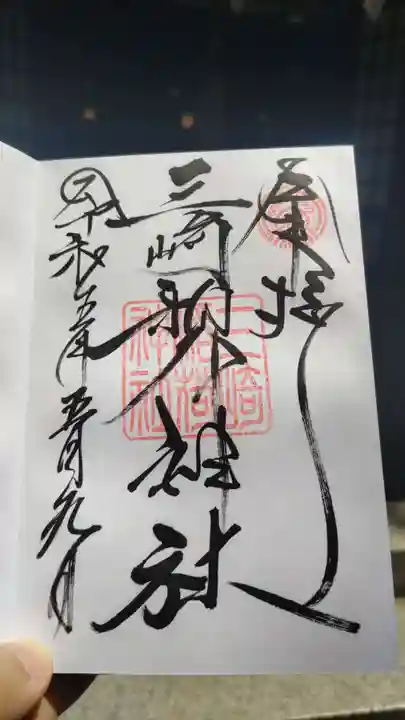 奉拝
三崎稲荷神社
令和五年五月九日
三崎
稲荷
神社